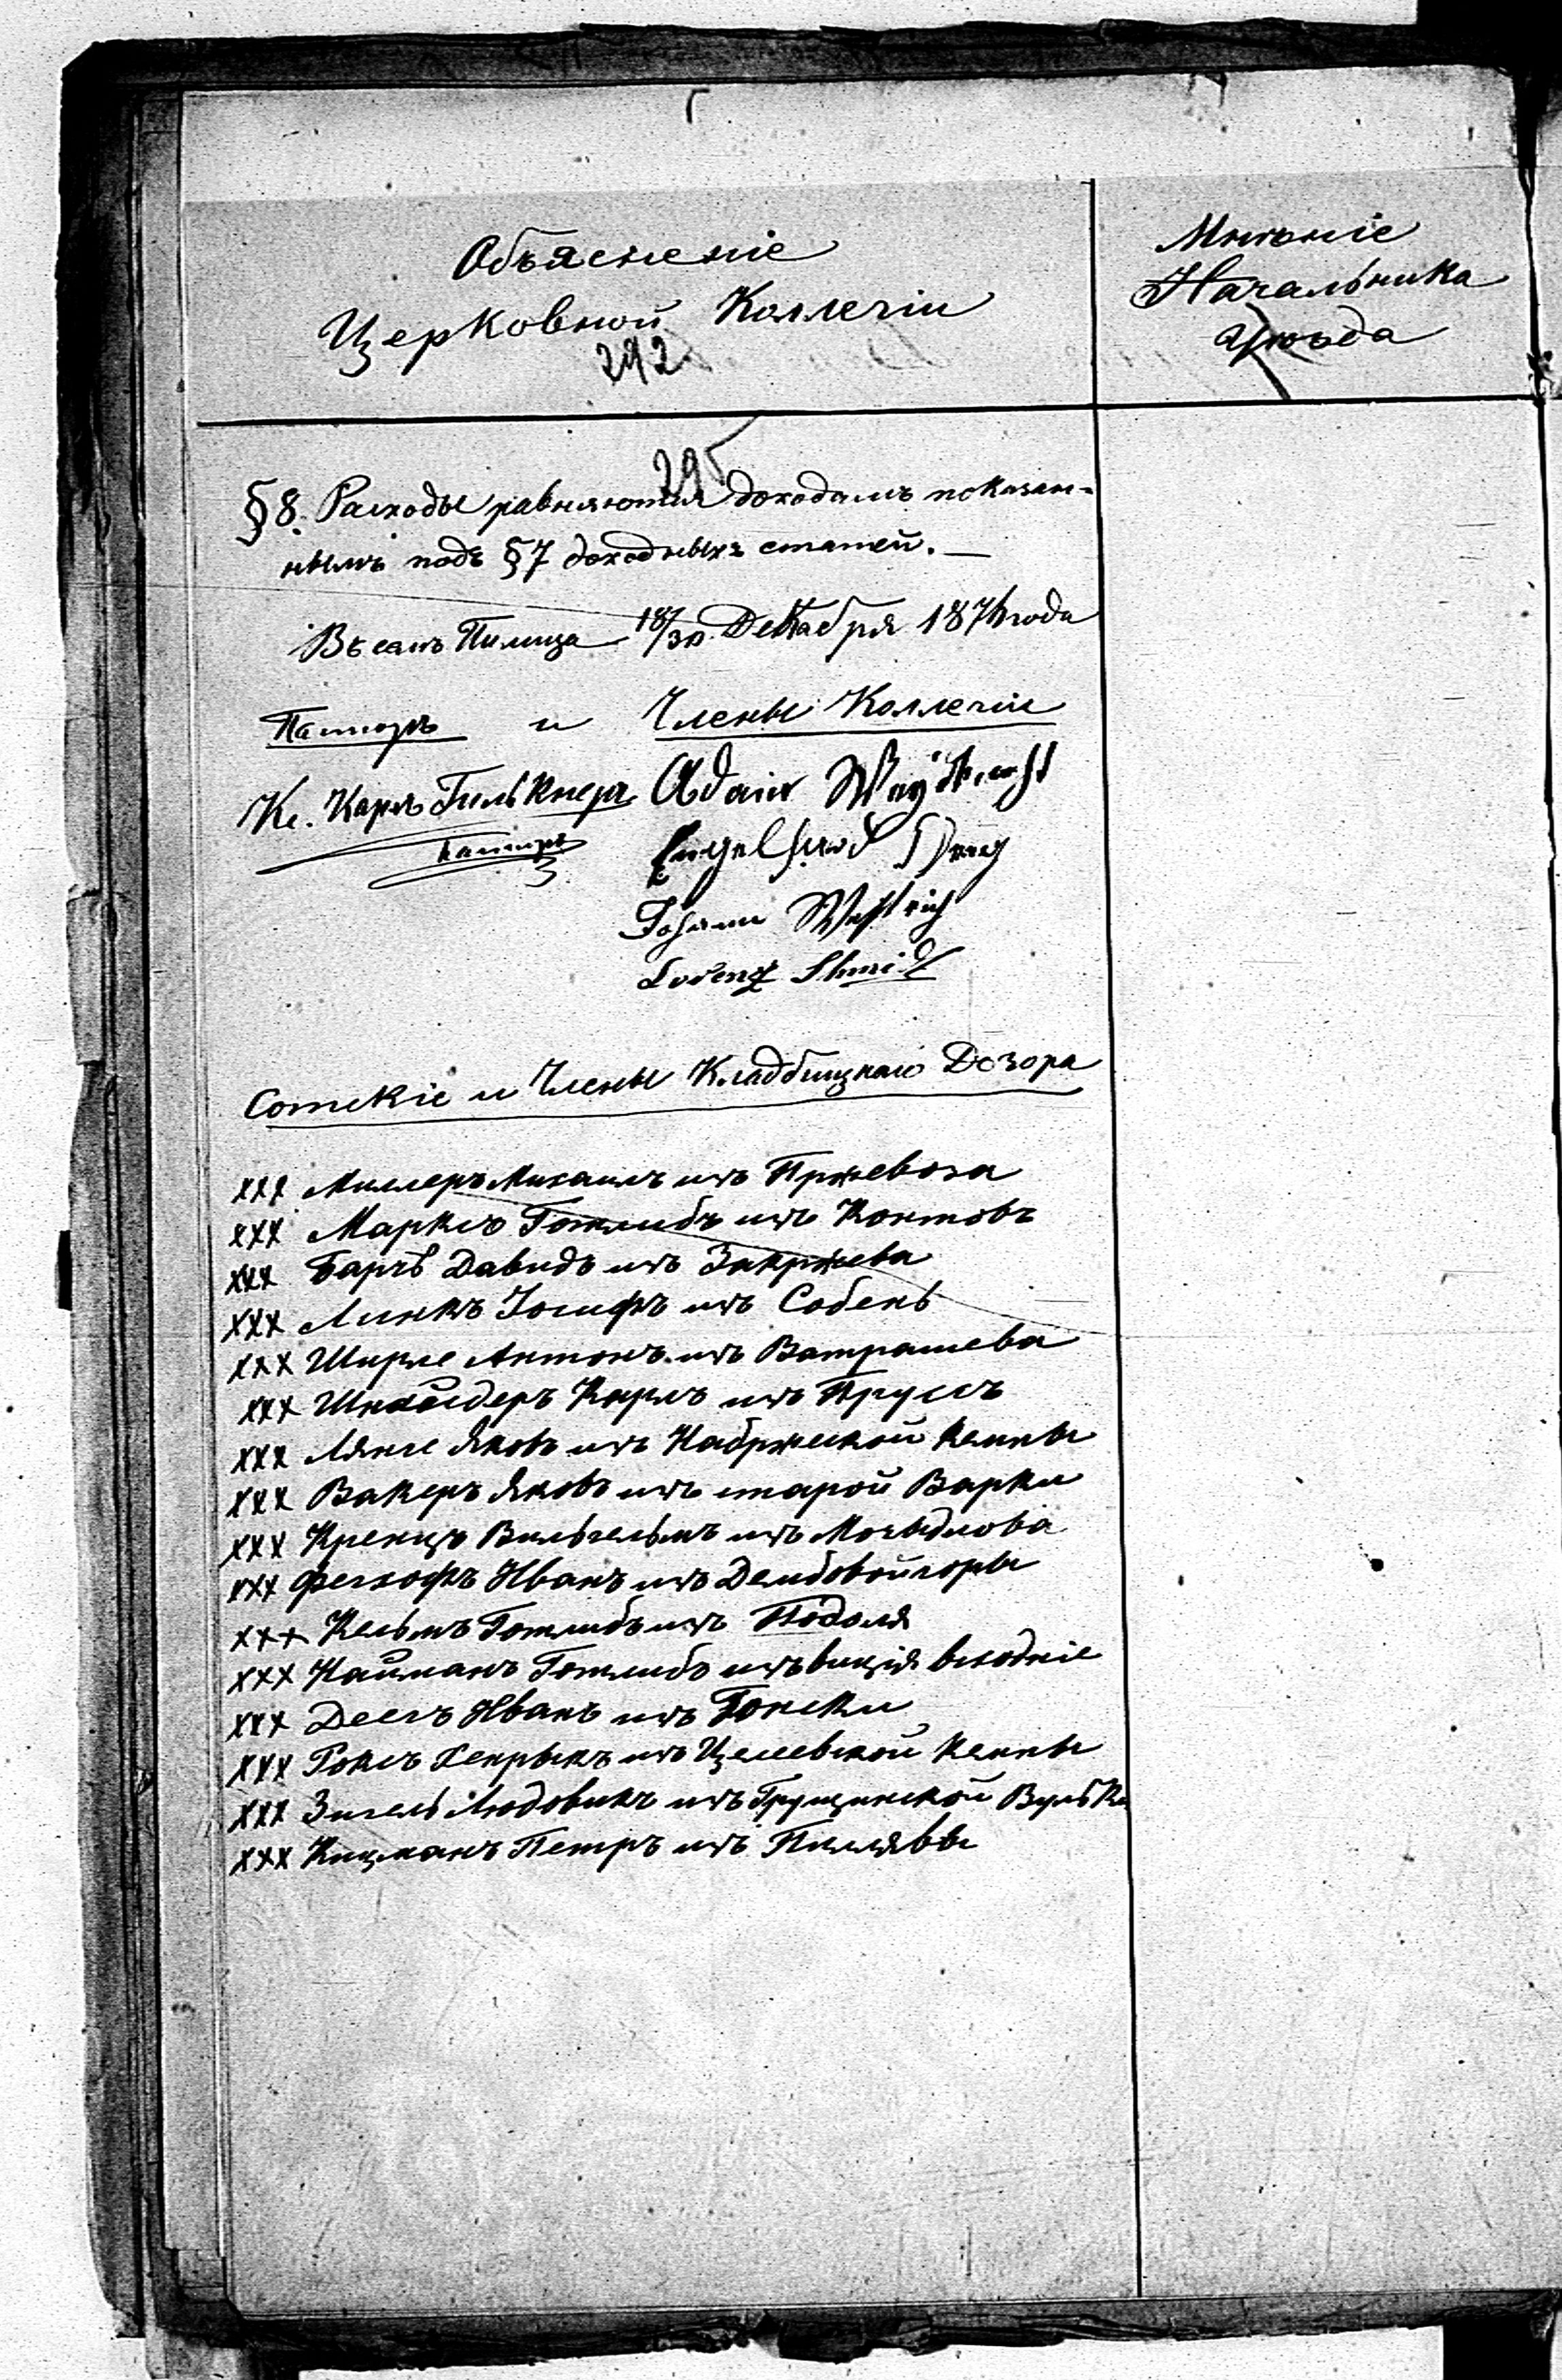 Объясненіе
Церковной Коллегіи
292
Мнѣніе
Начальника
Уѣзда
295
§ 8. Расходы равняются доходамъ показан-
нымъ подъ § 7 доходныхъ статей. —
Въ селѣ Пилица 18/30 Декабря 187 года
Пасторъ и Члены Коллегіи
Кс. Карлъ Adam
Пасторъ
Johann
Lorenz Shmid
Сотскіе и Члены Кладбищнаго Дозора
xxx Миллеръ Михаилъ изъ Пржевоза
xxx Марксъ Готлибъ изъ Контовъ
xxx Барчъ Давидъ изъ Закржева
xxx Линкъ Іосифъ изъ Собенъ
xxx Ширле Антонъ изъ Ватрашева
xxx Шнайдеръ Карлъ изъ Пруссъ
xxx Лянге Яковъ изъ Набржеской Кемпы
xxx Вакеръ Яковъ изъ старой Варки
xxx Кренцъ Вильгельмъ изъ Магъдлова
xxx Иванъ изъ Дембовойгоры
xxx Кельмъ Готлибъ изъ Подоля
xxx Найманъ Готлибъ изъ
xxx Деегъ Иванъ изъ Гонски
xxx Хенрыкъ изъ Кемпы
xxx Зигель Людовикъ изъ Грущинской Вульки
xxx Кицманъ Петръ изъ Пилявы